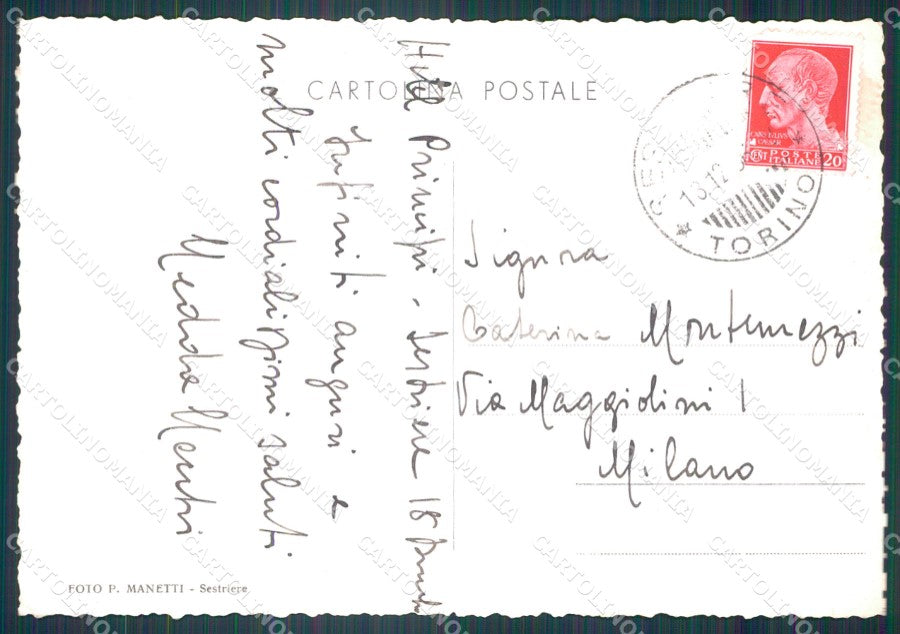 CARTOLINA POSTALE
Hôtel Principi - Sestriere 18
Infiniti auguri e
molti cordialissimi saluti
Signora
Caterina Montemezzi
Via Maggiolini 1
Milano
CAIVS IVLIVS
CAESAR
CENT POSTE ITALIANE 20
18.12
TORINO
FOTO P. MANETTI - Sestriere
CARTOLINOMANIA